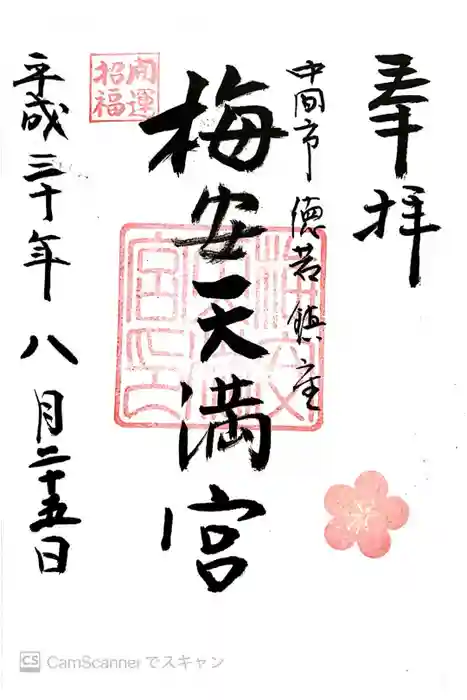 奉拝
中間市 徳若鎮座
梅安天満宮
開運
招福
平成三十年 八月二十五日
CS CamScannerでスキャン